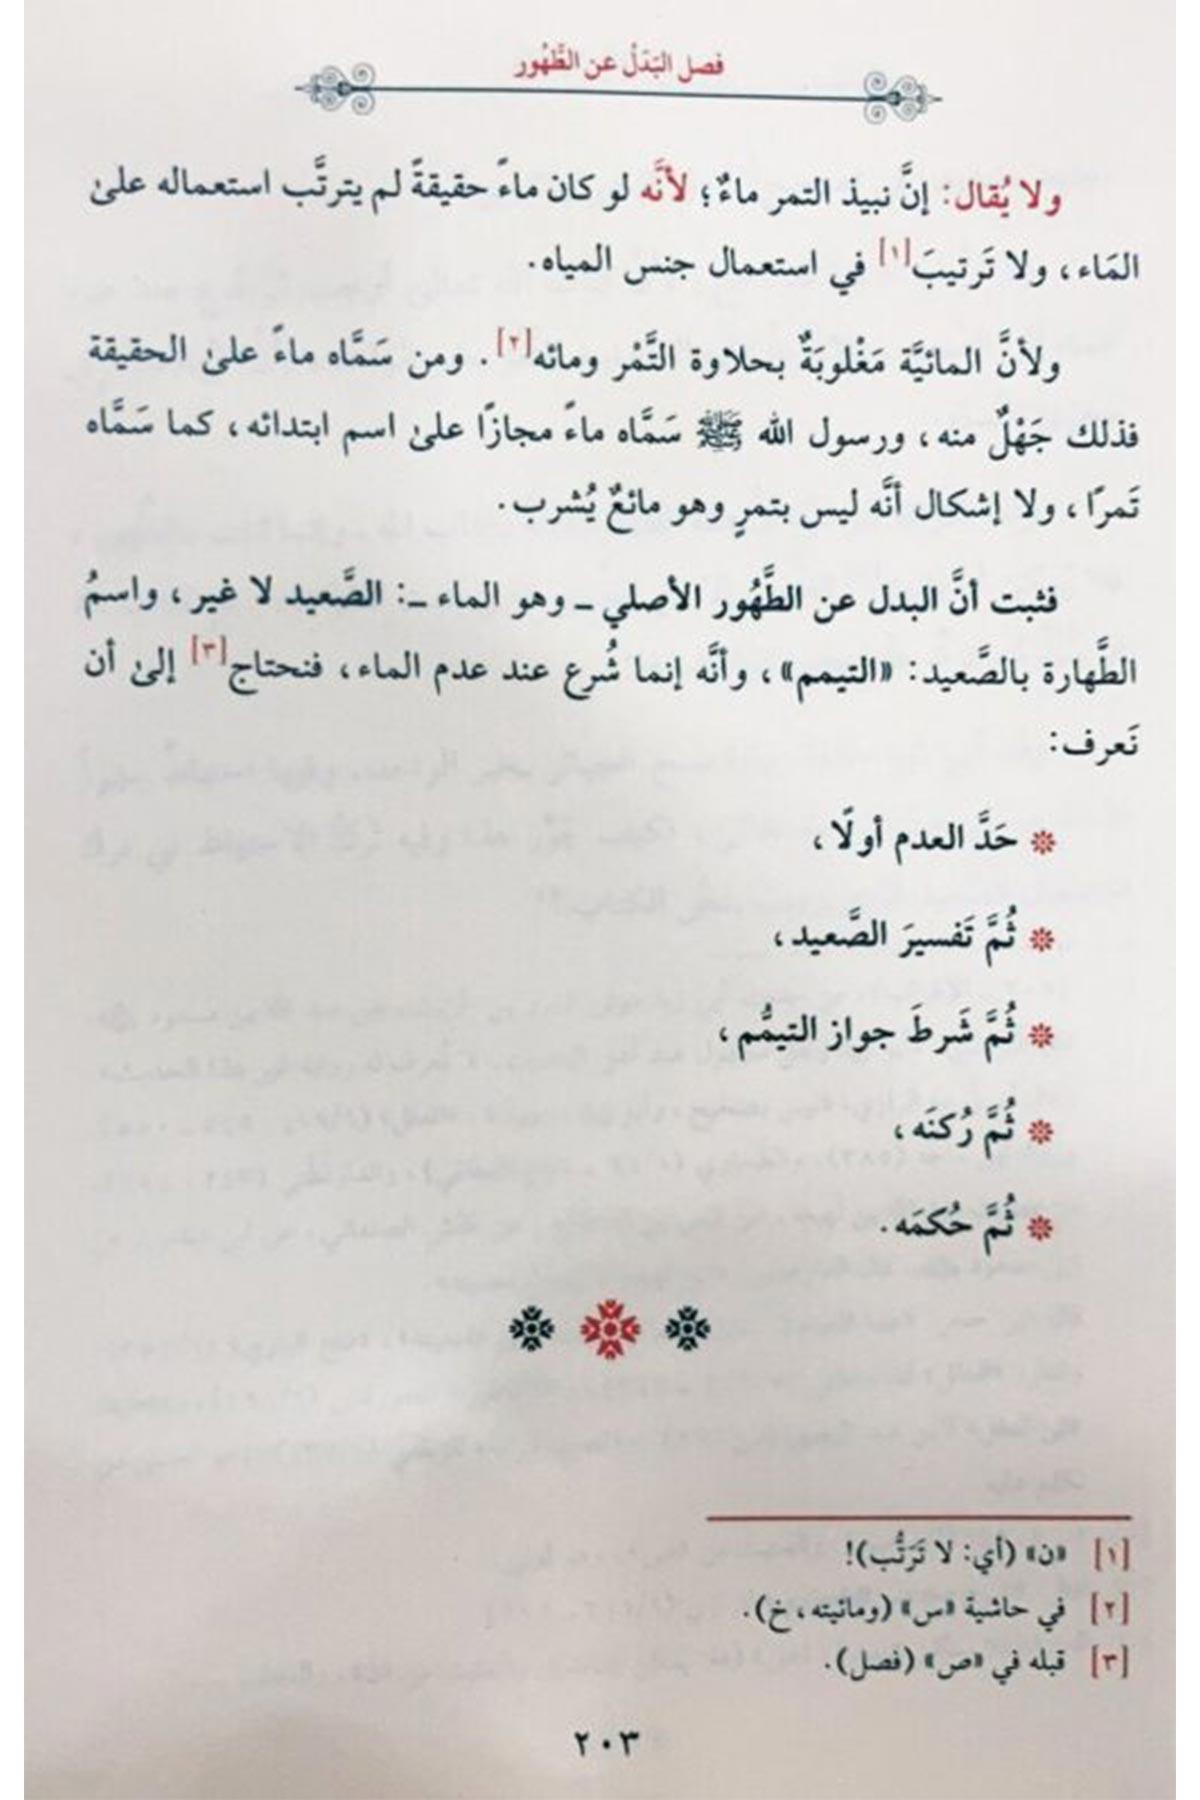 فصل البَدَلُ عن الطَّهُور
ولا يُقال: إنَّ نبيذ التمر ماءٌ؛ لأنَّه لو كان ماءً حقيقةً لم يترتَّب استعماله علىٰ
المَاء، ولا تَرتيبَ[١] في استعمال جنس المياه.
ولأنَّ المائيَّة مَغْلوبَةٌ بحلاوة التَّمْر ومائه[٢]. ومن سَمَّاه ماءً علىٰ الحقيقة
فذلك جَهْلٌ منه، ورسول الله ﷺ سَمَّاه ماءً مجازًا علىٰ اسم ابتدائه، كما سَمَّاه
تَمرًا، ولا إشكال أنَّه ليس بتمرٍ وهو مائعٌ يُشرب.
فثبت أنَّ البدل عن الطَّهُور الأصلي ـ وهو الماء ـ: الصَّعيد لا غير، واسمُ
الطَّهارة بالصَّعيد: «التيمم»، وأنَّه إنما شُرع عند عدم الماء، فنحتاج[٣] إلىٰ أن
نَعرف:
* حَدَّ العدم أولًا،
* ثُمَّ تَفسيرَ الصَّعيد،
* ثُمَّ شَرطَ جواز التيمُّم،
* ثُمَّ رُكنَه،
* ثُمَّ حُكمَه.
[١] «ن» (أي: لا تَرَتُّب)!
[٢] في حاشية «س» (ومائيته، خ).
[٣] قبله في «ص» (فصل).
٢٠٣